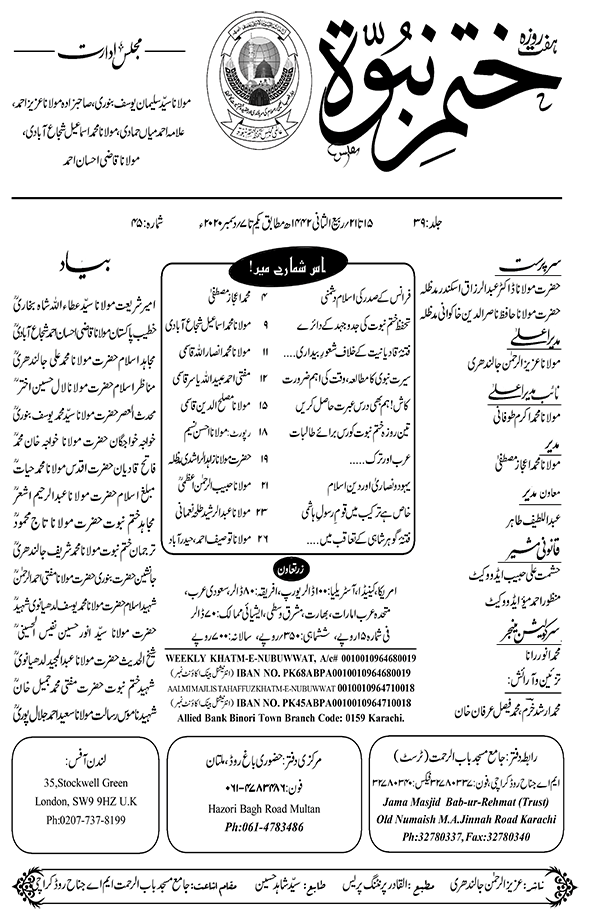 ہفت روزہ
ختم نبوۃ
مجلس ادارت
مولانا سیّد سلیمان یوسف بنوری، صاحبزادہ مولانا عزیز احمد،
علامہ احمد میاں حمادی، مولانا محمد اسماعیل شجاع آبادی،
مولانا قاضی احسان احمد
جلد: ۳۹
۱۵ تا ۲۱/ ربیع الثانی ۱۴۴۲ھ مطابق یکم تا ۷/ دسمبر ۲۰۲۰ء
شمارہ: ۴۵
سرپرست
حضرت مولانا ڈاکٹر عبدالرزاق اسکندر مدظلہ
حضرت مولانا حافظ ناصر الدین خاکوانی مدظلہ
مدیر اعلیٰ
مولانا عزیز الرحمٰن جالندھری
نائب مدیر اعلیٰ
مولانا محمد اکرم طوفانی
مدیر
مولانا محمد اعجاز مصطفیٰ
معاون مدیر
عبداللطیف طاہر
قانونی مشیر
حشمت علی حبیب ایڈووکیٹ
منظور احمد میؤ ایڈووکیٹ
سرکولیشن منیجر
محمد انور رانا
تزئین و آرائش:
محمد ارشد خرم، محمد فیصل عرفان خان
اس شمارے میں!
فرانس کے صدر کی اسلام دشمنی ۴ محمد اعجاز مصطفیٰ
تحفظ ختم نبوت کی جدوجہد کے دائرے ۹ مولانا محمد اسماعیل شجاع آبادی
فتنۂ قادیانیت کے خلاف شعور بیداری.... ۱۱ مولانا محمد انصار اللہ قاسمی
سیرت نبوی کا مطالعہ، وقت کی اہم ضرورت ۱۲ مفتی احمد عبیداللہ یاسر قاسمی
کاش! ہم بھی درس عبرت حاصل کریں ۱۵ مولانا مصلح الدین قاسمی
تین روزہ ختم نبوت کورس برائے طالبات ۱۸ رپورٹ: مولانا احسن نسیم
عرب اور ترک..... ۱۹ حضرت مولانا زاہد الراشدی مدظلہ
یہود و نصاریٰ اور دین اسلام ۲۱ مولانا حبیب الرحمٰن اعظمی
خاص ہے ترکیب میں قوم رسولِ ہاشمی ۲۳ مولانا عبدالرشید طلحہ نعمانی
فتنۂ گوہر شاہی کے تعاقب میں.... ۲۶ مولانا توصیف احمد، حیدرآباد
زرتعاون
امریکا، کینیڈا، آسٹریلیا: ۱۰۰ ڈالر یورپ، افریقہ: ۸۰ ڈالر سعودی عرب،
متحدہ عرب امارات، بھارت، مشرق وسطی، ایشیائی ممالک: ۷۰ ڈالر
فی شمارہ ۱۵ روپے، ششماہی: ۳۵۰ روپے، سالانہ: ۷۰۰ روپے
WEEKLY KHATM-E-NUBUWWAT, A/c# 0010010964680019
IBAN NO. PK68ABPA0010010964680019 (انٹرنیشنل بینک اکاؤنٹ نمبر)
AALMI MAJLIS TAHAFFUZ KHATM-E-NUBUWWAT 0010010964710018
IBAN NO. PK45ABPA0010010964710018 (انٹرنیشنل بینک اکاؤنٹ نمبر)
Allied Bank Binori Town Branch Code: 0159 Karachi.
بیاد
امیر شریعت مولانا سیّد عطاء اللہ شاہ بخاریؒ
خطیب پاکستان مولانا قاضی احسان احمد شجاع آبادیؒ
مجاہد اسلام حضرت مولانا محمد علی جالندھریؒ
مناظر اسلام حضرت مولانا لال حسین اخترؒ
محدث العصر حضرت مولانا سیّد محمد یوسف بنوریؒ
خواجہ خواجگان حضرت مولانا خواجہ خان محمدؒ
فاتح قادیان حضرت اقدس مولانا محمد حیاتؒ
مبلغ اسلام حضرت مولانا عبدالرحیم اشعرؒ
مجاہد ختم نبوت حضرت مولانا تاج محمودؒ
ترجمان ختم نبوت مولانا محمد شریف جالندھریؒ
جانشین حضرت بنوری حضرت مولانا مفتی احمد الرحمٰنؒ
شہید اسلام حضرت مولانا محمد یوسف لدھیانوی شہیدؒ
حضرت مولانا سیّد انور حسین نفیس الحسینیؒ
شیخ الحدیث حضرت مولانا عبدالمجید لدھیانویؒ
شہید ختم نبوت حضرت مفتی محمد جمیل خانؒ
شہید ناموس رسالت مولانا سعید احمد جلال پوریؒ
رابطہ دفتر: جامع مسجد باب الرحمت (ٹرسٹ)
ایم اے جناح روڈ کراچی، فون: ۳۲۷۸۰۳۳۷، فیکس: ۳۲۷۸۰۳۴۰
Jama Masjid Bab-ur-Rehmat (Trust)
Old Numaish M.A.Jinnah Road Karachi
Ph:32780337, Fax:32780340
مرکزی دفتر: حضوری باغ روڈ، ملتان
فون: ۰۶۱-۴۷۸۳۴۸۶
Hazori Bagh Road Multan
Ph:061-4783486
لندن آفس:
35,Stockwell Green
London, SW9 9HZ U.K
Ph:0207-737-8199
ناشر: عزیز الرحمٰن جالندھری مطبع: القادر پرنٹنگ پریس طابع: سیّد شاہد حسین مقام اشاعت: جامع مسجد باب الرحمت ایم اے جناح روڈ کراچی